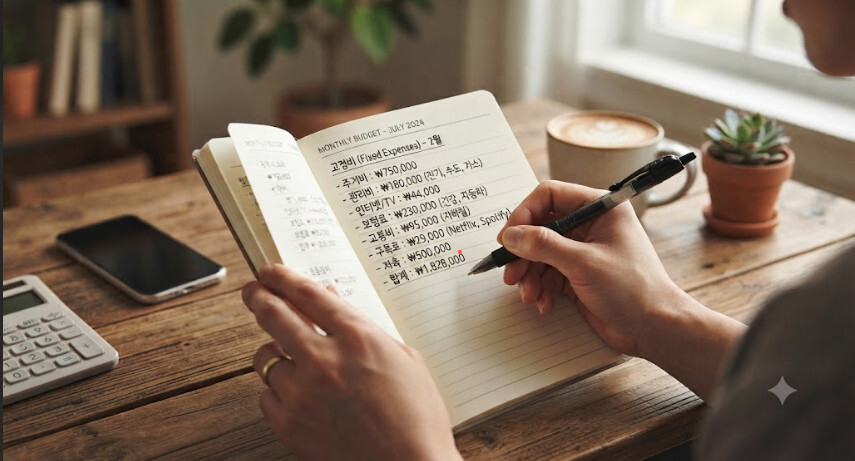 MONTHLY BUDGET - JULY 2024
고정비 (Fixed Expenses) - 2월
- 주거비 : ₩750,000
- 관리비 : ₩180,000 (전기, 수도, 가스)
- 인터넷/TV : ₩44,000
- 보험료 : ₩230,000 (건강, 자동차)
- 교통비 : ₩95,000 (지하철)
- 구독료 : ₩29,000 (Netflix, Spotify)
- 저축 : ₩500,000
- 합계 : ₩1,828,000